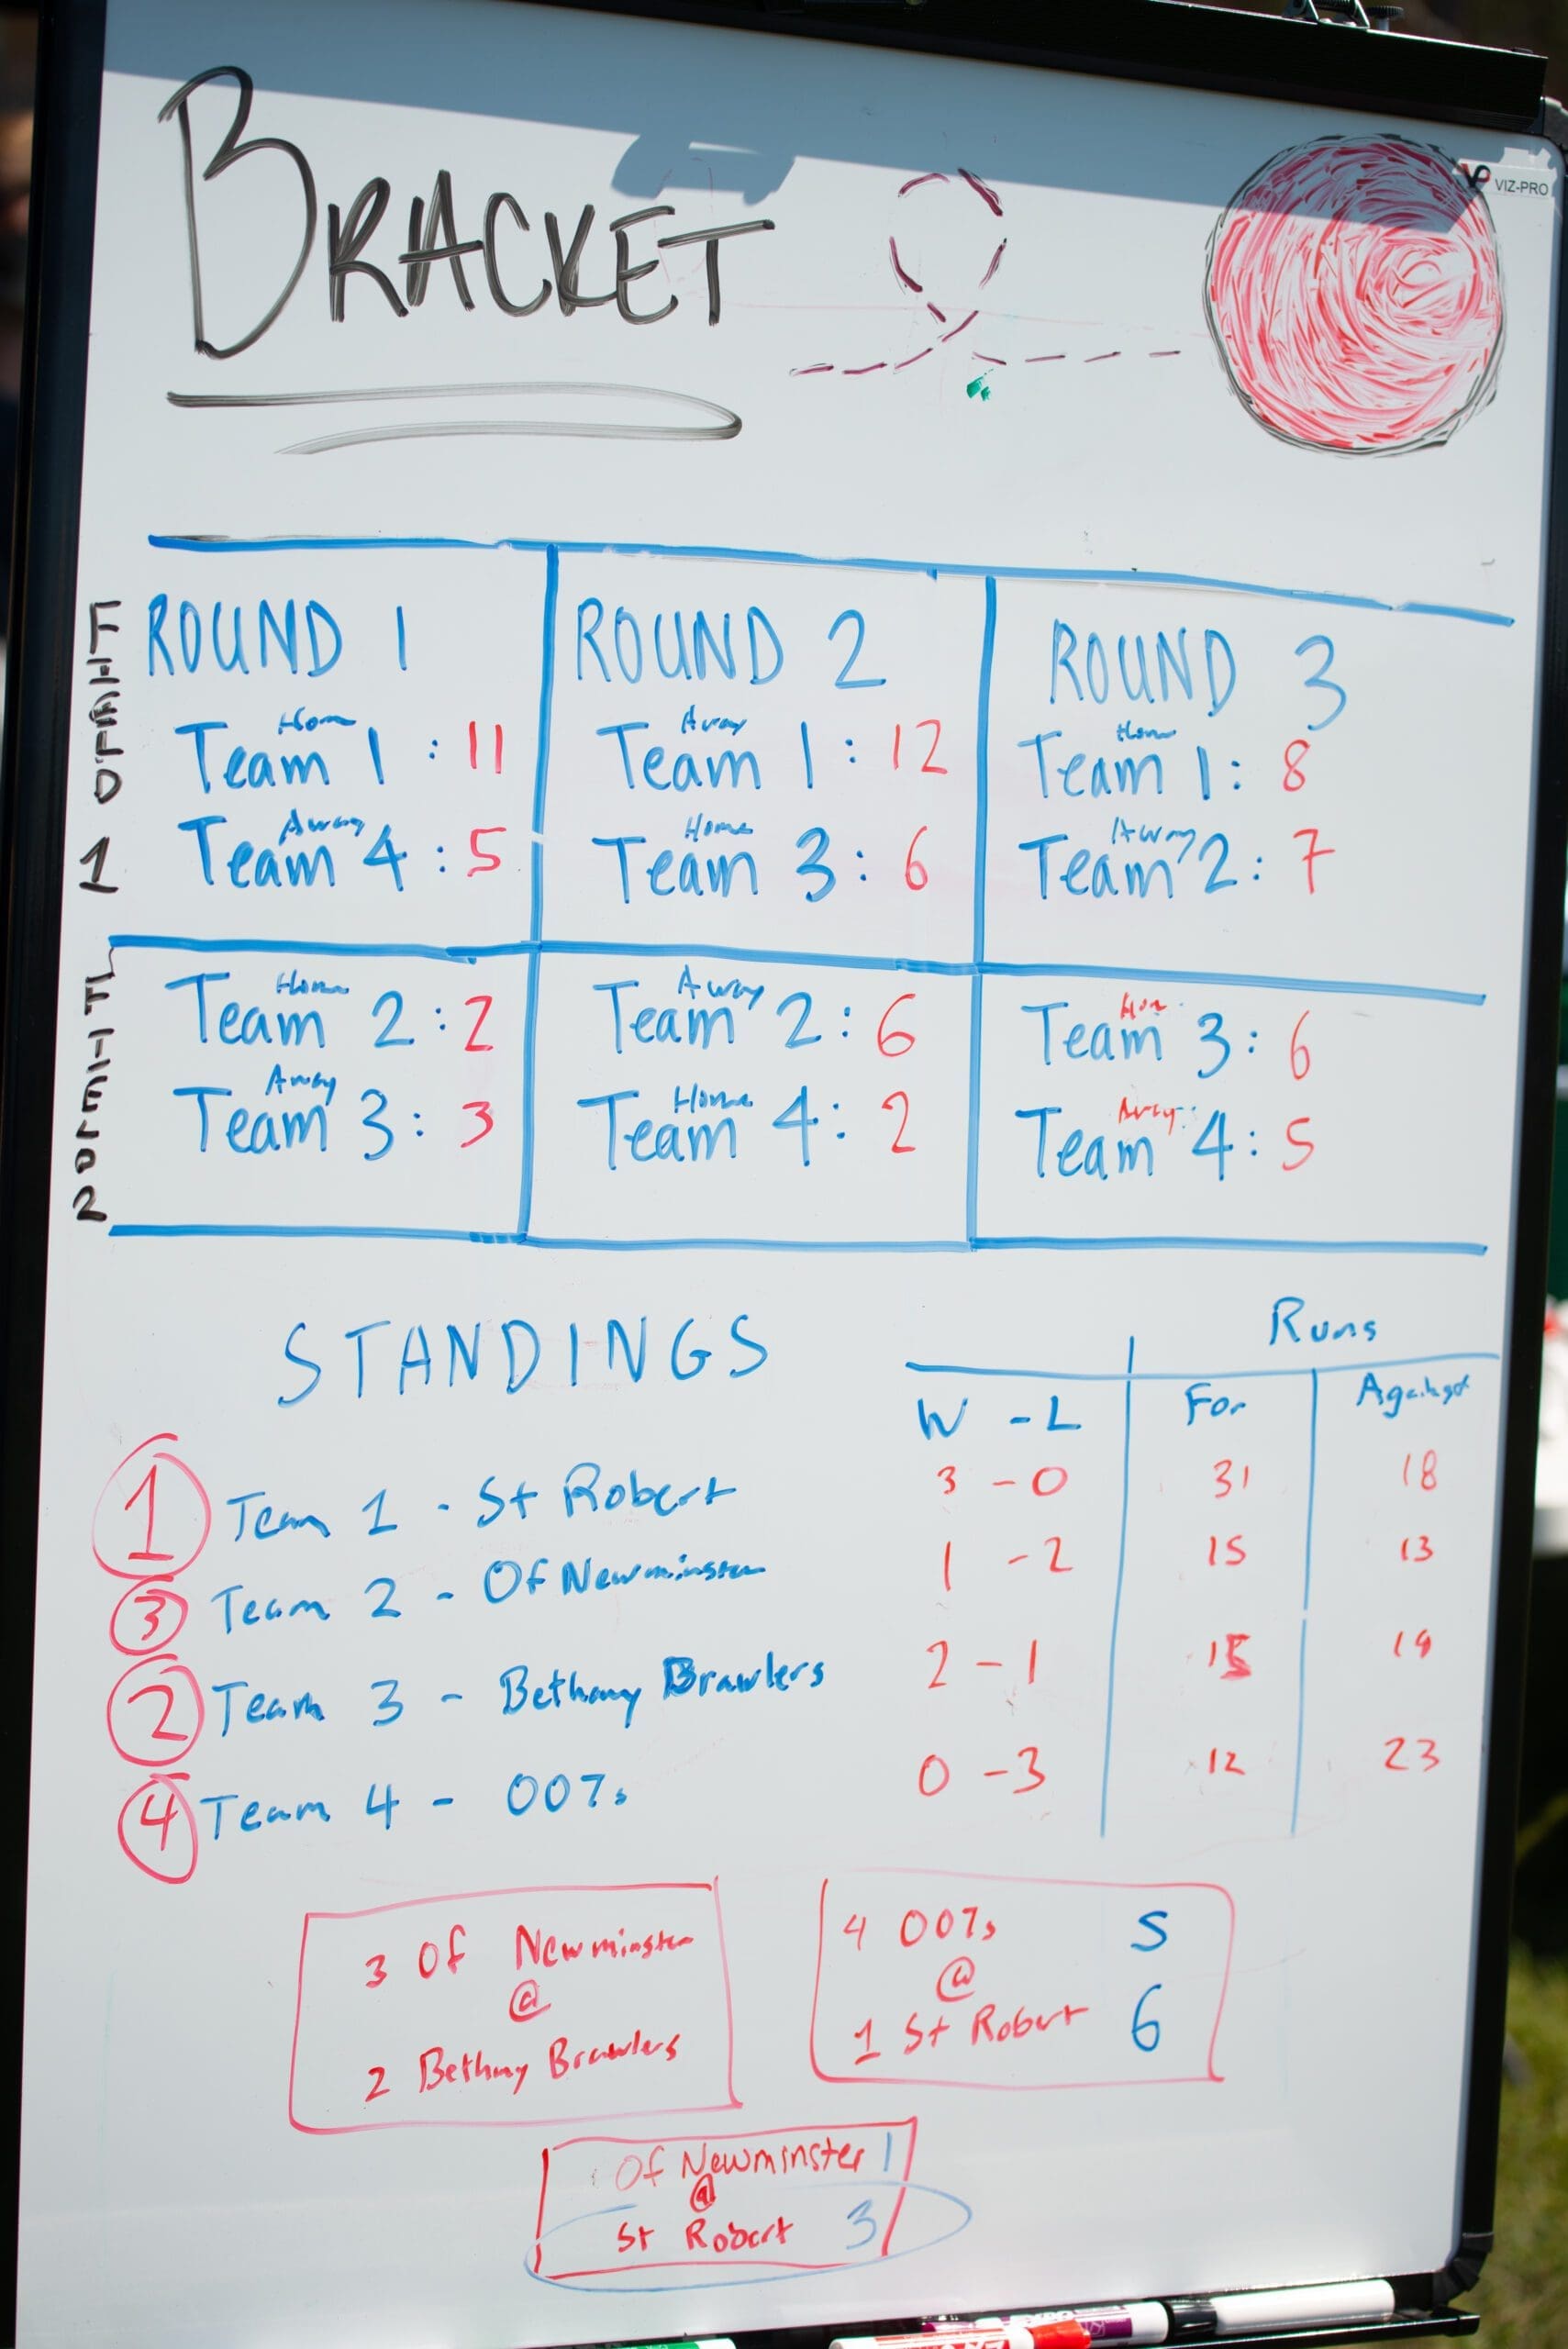 VIZ-PRO
BRACKET
FIELD 1
ROUND 1
Home
Team 1 : 11
Away
Team 4 : 5
ROUND 2
Away
Team 1 : 12
Home
Team 3 : 6
ROUND 3
Home
Team 1 : 8
Away
Team 2 : 7
FIELD 2
Home
Team 2 : 2
Away
Team 3 : 3
Away
Team 2 : 6
Home
Team 4 : 2
Team 3 : 6
Away
Team 4 : 5
STANDINGS
Runs
W - L For Against
1 Team 1 - St Robert 3 - 0 31 18
3 Team 2 - Of Newminster 1 - 2 15 13
2 Team 3 - Bethany Brawlers 2 - 1 19
4 Team 4 - 007s 0 - 3 12 23
3 Of Newminster
@
2 Bethany Brawlers
4 007s 5
@
1 St Robert 6
Of Newminster 1
@
St Robert 3